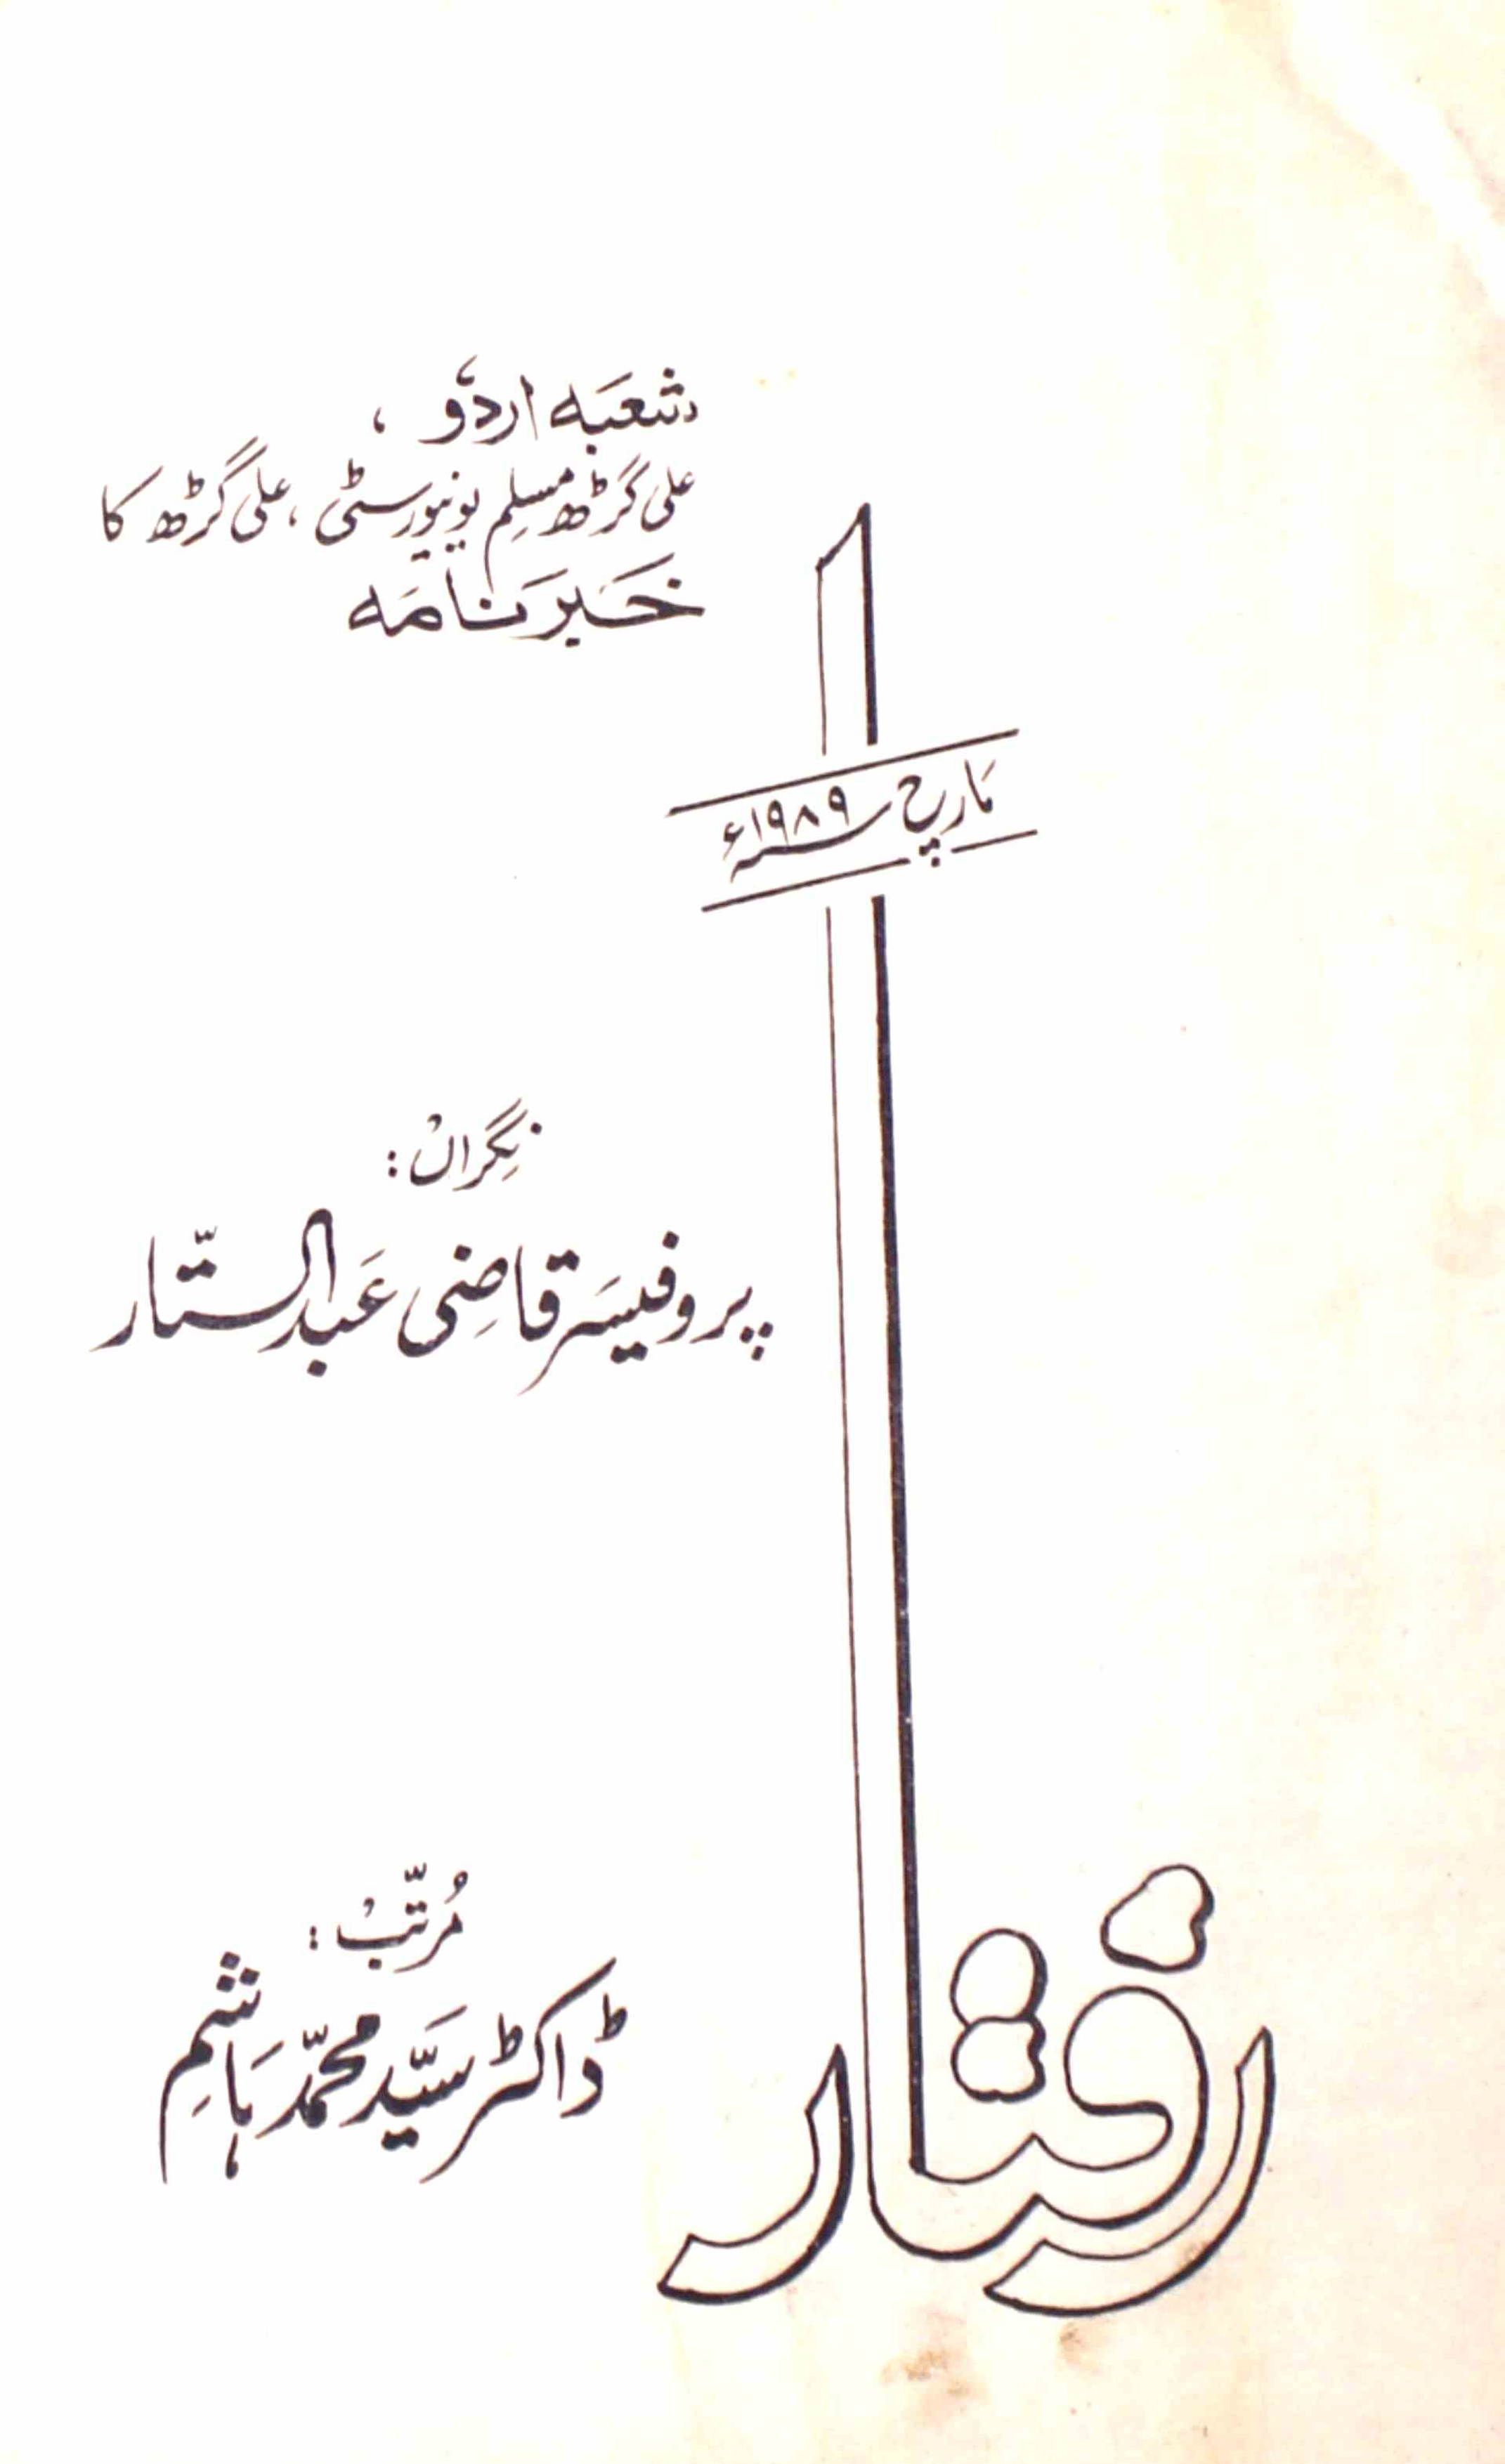 شعبہ اردو،
علی گڑھ مسلم یونیورسٹی، علی گڑھ کا
خبرنامہ
مارچ ۱۹۸۹ء
نگراں:
پروفیسر قاضی عبدالستّار
مُرتّب:
ڈاکٹر سیّد محمّد ہاشم
رفتار